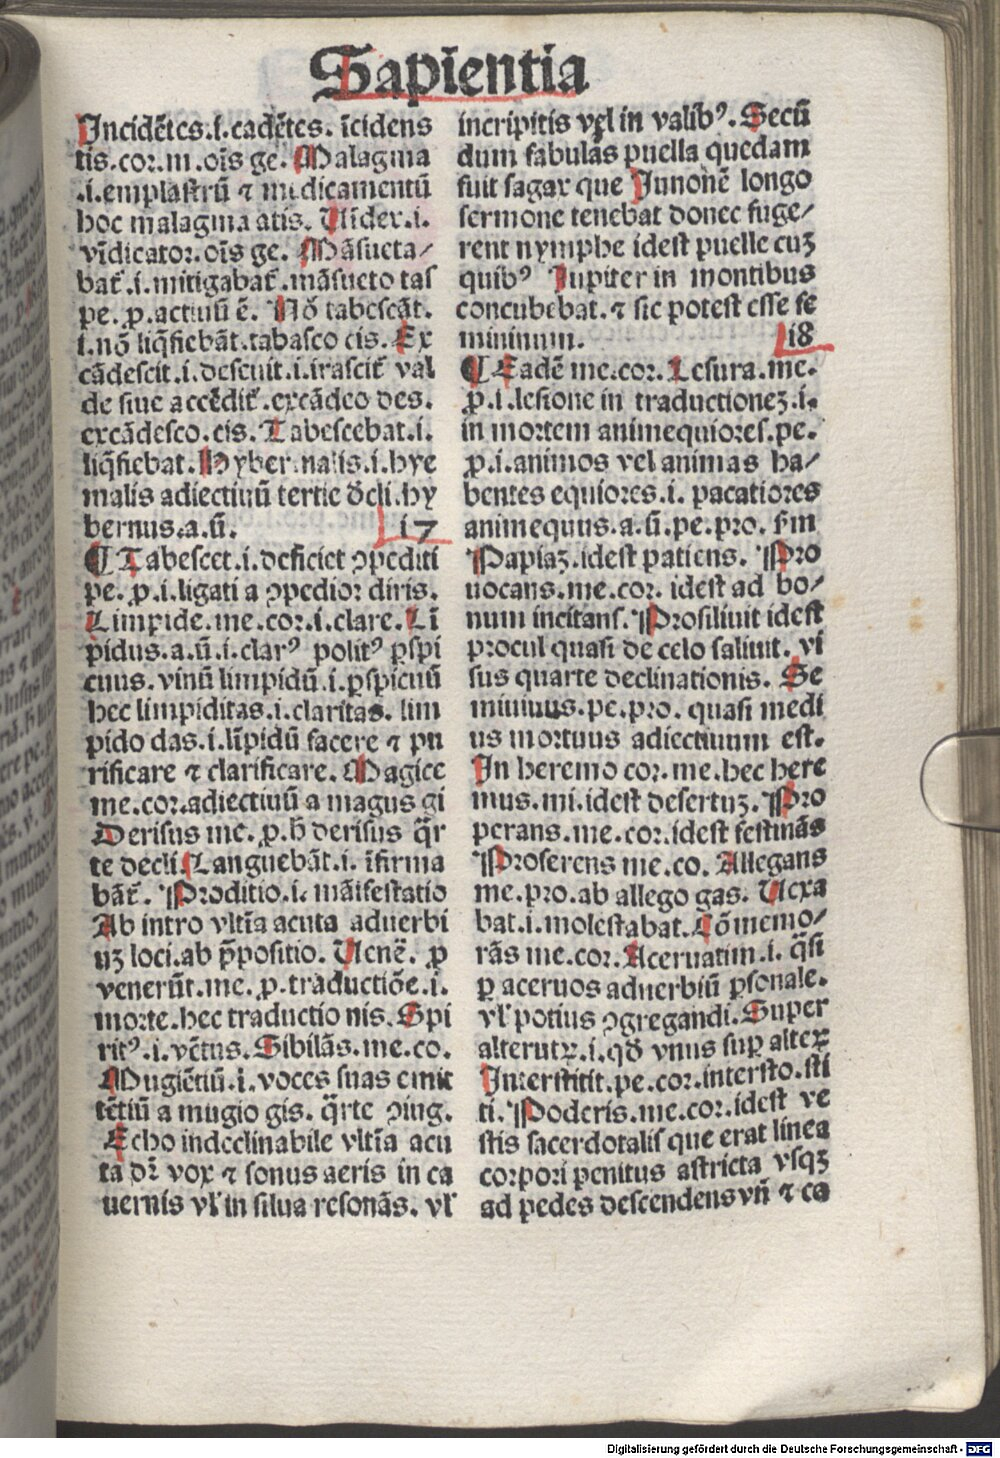 Sapientia
Incidētes.i.cadētes. īcidens
tis.coꝛ.m.oīs ge. Malagma
.i.emplastrū ⁊ medicamentū
hoc malagma atis. Uīdex.i.
vīdicatoꝛ.oīs ge. Māsueta/
bat᷑.i.mitigabat᷑.māsueto tas
pe. ꝓ.actiuū ē. Nō tabescāt.
i.nō liq̄fiebāt.tabasco cis. Ex
cādescit.i.deseuit.i.irascit᷑ val
de siue accēdit᷑.excādeo des.
excādesco.cis. Tabescebat.i.
liq̄fiebat. Hybernalis.i.hye
malis adiectiuū tertie decli.hy
bernus.a.ū. 17
¶ Tabescet.i.deficiet ꝯpediti
pe. ꝓ.i.ligati a ꝯpedioꝛ diris.
Limpide.me.coꝛ.i.clare. Lī
pidus.a.ū.i.clarꝰ politꝰ ꝑspi
cuus. vinū limpidū.i.ꝑspicuū
hec limpiditas.i.claritas. lim
pido das.i.līpidū facere ⁊ pu
rificare ⁊ clarificare. Magice
me.coꝛ.adiectiuū a magus gi
Derisus me. ꝓ.h̄ derisus q̄r
te decli. Languebāt.i. īfirma
bāt᷑. Proditio.i. māifestatio
Ab intro vltīa acuta aduerbi
uʒ loci.ab p̄positio. Uenē᷑. ꝓ
venerūt.me. ꝓ.traductiōe.i.
moꝛte.hec traductio nis. Spi
ritꝰ.i.vētus. Sibilās.me.co.
Mugiētiū.i.voces suas emit
tētiū a mugio gis. q̄rte ꝯiug.
Echo indeclinabile vltīa acu
ta dr̄ vox ⁊ sonus aeris in ca
uernis vl᷑ in silua resonās. vl᷑
incripitis vel in valibꝰ. Secū
dum fabulas puella quedam
fuit sagax que Iunonē longo
sermone tenebat donec fuge/
rent nymphe idest puelle cuʒ
quibꝰ Iupiter in montibus
concubebat.⁊ sic potest esse fe
mininum. 18
¶ Eadē me.coꝛ. Lesura.me.
ꝓ.i.lesione in traductioneʒ.i.
in moꝛtem animequioꝛes.pe.
ꝓ.i.animos vel animas ha/
bentes equioꝛes.i. pacatioꝛes
animequus.a.ū.pe.pro. s̄m
Papiaʒ.idest patiens. Pro
uocans.me.coꝛ. idest ad bo/
num incitans. Prosiliuit idest
procul quasi de celo saliuit. vi
sus quarte declinationis. Se
miuiuus.pe.pro. quasi medi
us moꝛtuus adiectiuum est.
In heremo coꝛ.me.hec here
mus.mi.idest desertuʒ. Pro
perans.me.coꝛ.idest festinās
Proferens me.co. Allegans
me.pro.ab allego gas. Uexa
bat.i.molestabat. Cōmemo/
rās me.coꝛ. Aceruatim.i. q̄si
ꝑ aceruos aduerbiū ꝑsonale.
vl᷑ potius ꝯgregandi. Super
alterutꝝ.i.qđ vnus suꝑ alteꝝ
Interstitit.pe.coꝛ.intersto.sti
ti. Poderis.me.coꝛ.idest ve
stis sacerdotalis que erat linea
coꝛpoꝛi penitus astricta vsqʒ
ad pedes descendens vn̄ ⁊ ca
Digitalisierung gefördert durch die Deutsche Forschungsgemeinschaft - DFG